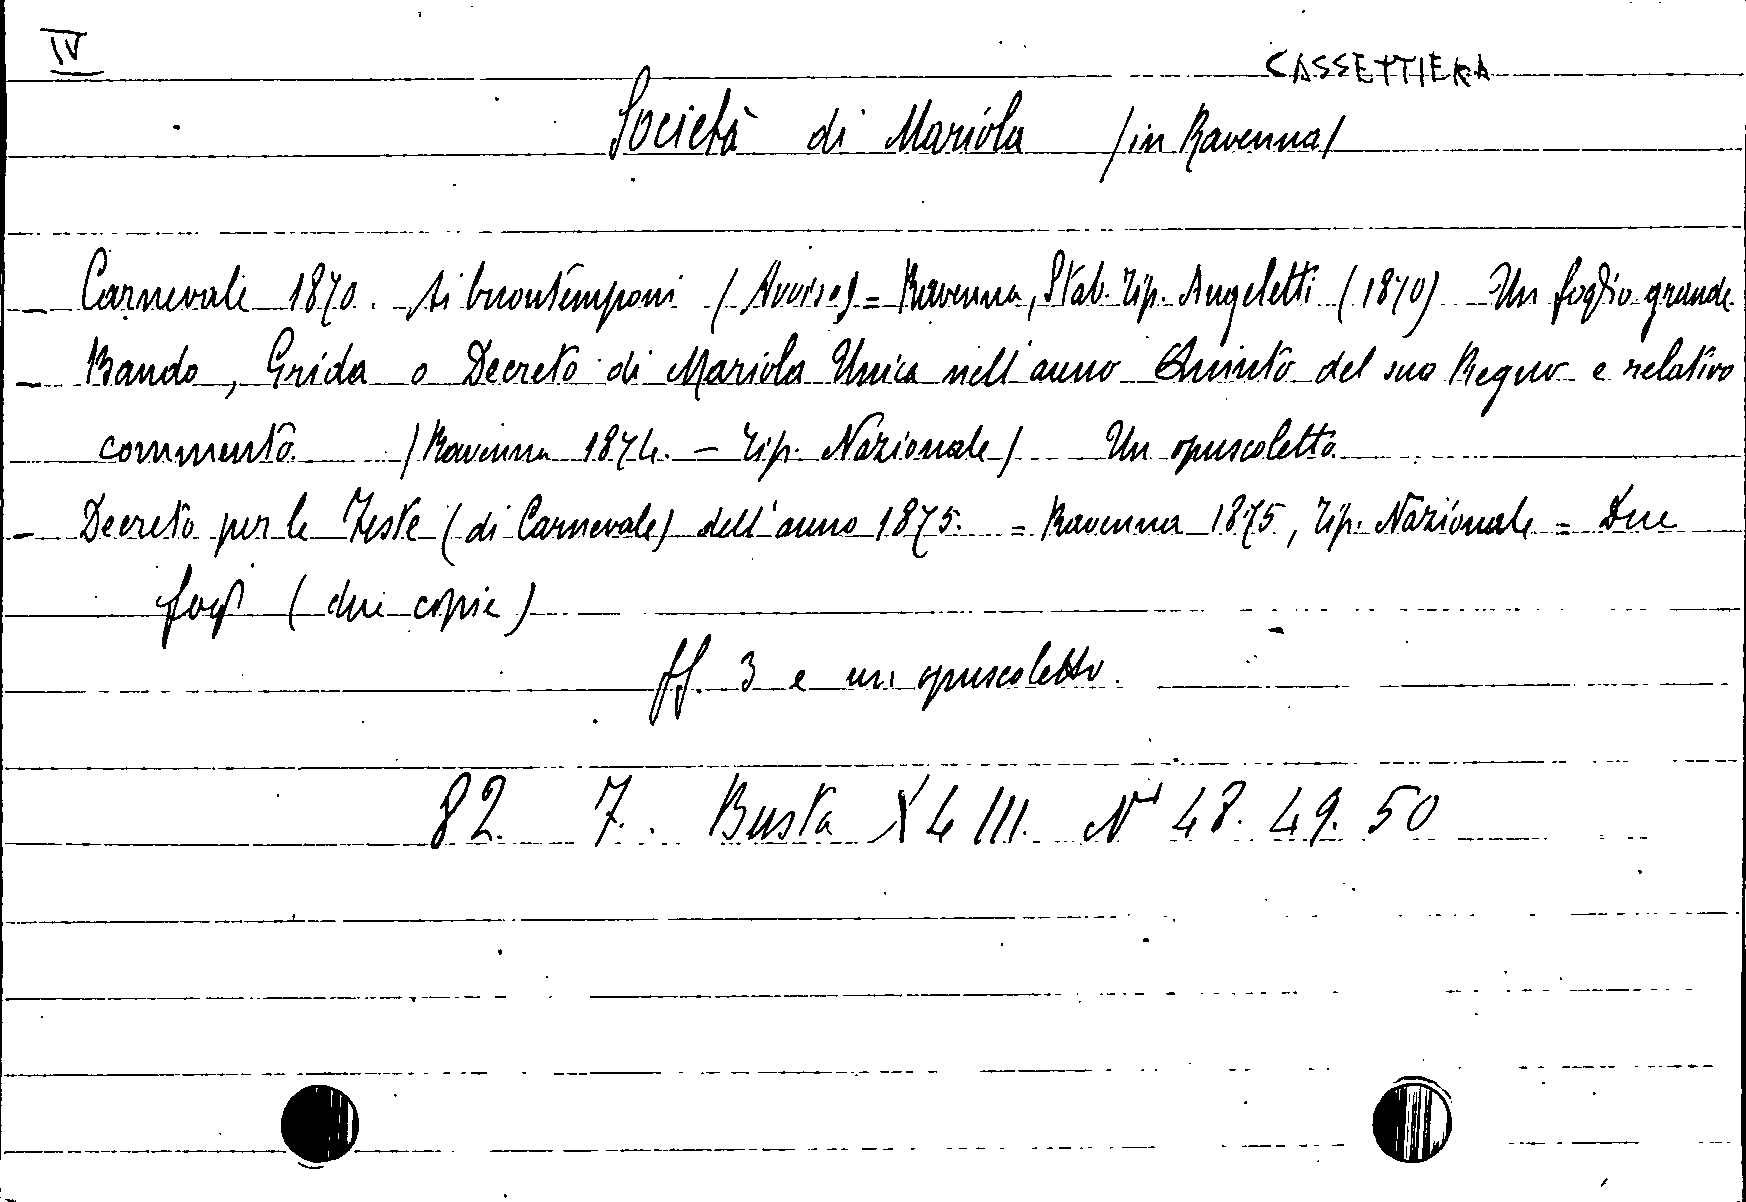 IV
CASSETTIERA
Società di Mariola (in Ravenna)
- Carnevale 1870. Ai buontemponi (Avviso) = Ravenna, Stab. Tip. Angeletti (1870) Un foglio grande
- Bando, Grida o Decreto di Mariola Unica nell'anno Quinto del suo Regno e relativo
commento (Ravenna 1874. - Tip. Nazionale) Un opuscoletto
- Decreto per le Feste (di Carnevale) dell'anno 1875. = Ravenna 1875, Tip. Nazionale = Due
fogl (due copie)
ff. 3 e un opuscoletto.
82. 7. Busta X4 III. Nⁱ 48. 49. 50